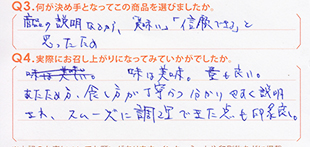 Q3.何が決め手となってこの商品を選びましたか。
商品の説明などが、美味しい「信頼できる」と
思ったため
Q4.実際にお召し上がりになってみていかがでしたか。
味は美味。量も良い。
あたため方、食し方が丁寧かつ分かりやすく説明
され、スムーズに調理できた点も印象良い。